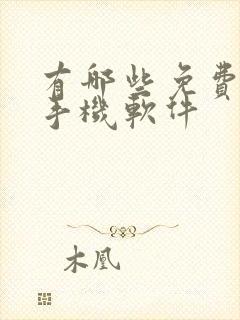 有哪些免費
手機軟件
木凰